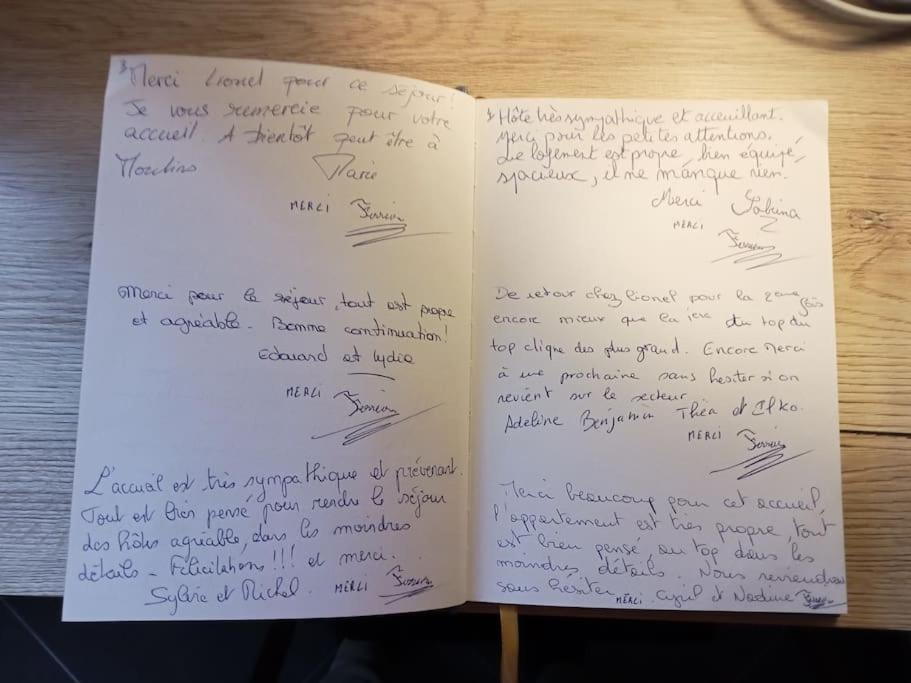 Merci Lionel pour ce séjour!
Je vous remercie pour votre
accueil. A bientôt peut être à
Moulins Marie
MERCI
Merci pour le séjour, tout est propre
et agréable. Bonne continuation!
Edouard et Lydie
MERCI
L'accueil est très sympathique et prévenant.
Tout est bien pensé pour rendre le séjour
des hôtes agréable, dans les moindres
détails - Félicitations!!! et merci.
Sylvie et Michel. MERCI
Hôte très sympathique et acceuillant.
Merci pour les petites attentions.
Le logement est propre, bien équipé,
spacieux, il ne manque rien.
Merci Sabrina
MERCI
De retour chez Lionel pour la 2eme fois
encore mieux que la 1ere du top du
top clique des plus grand. Encore Merci
à une prochaine sans hesiter si on
revient sur le secteur
Adeline Benjamin Théa et
MERCI
Merci beaucoup pour cet accueil,
l'appartement est très propre, tout
est bien pensé, au top dans les
moindres détails. Nous reviendrons
sans hésiter MERCI. et Nadine